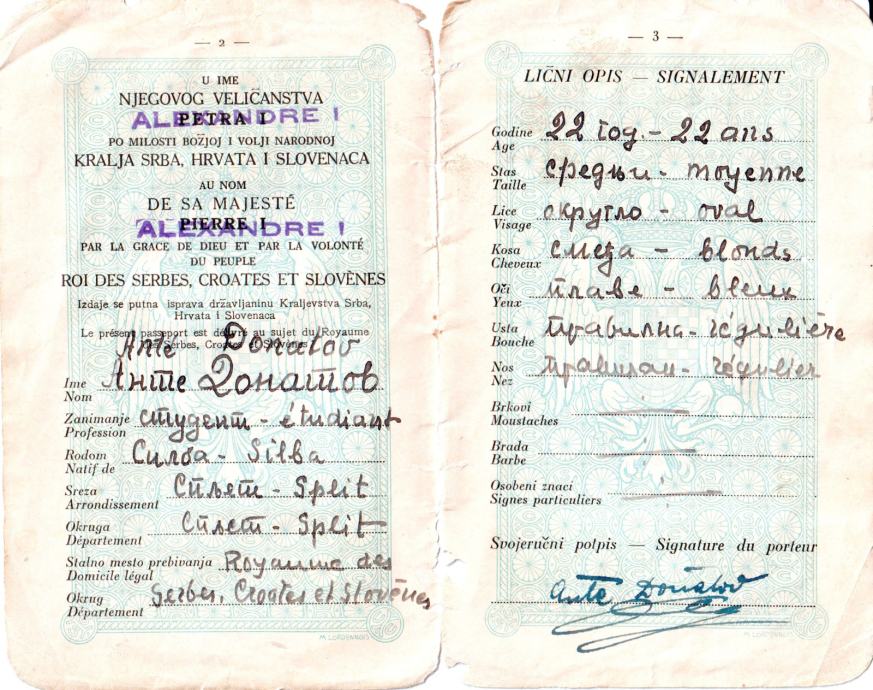 — 2 —
U IME
NJEGOVOG VELIČANSTVA
PETRA I
ALEXANDRE I
PO MILOSTI BOŽJOJ I VOLJI NARODNOJ
KRALJA SRBA, HRVATA I SLOVENACA
AU NOM
DE SA MAJESTÉ
PIERRE I
ALEXANDRE I
PAR LA GRACE DE DIEU ET PAR LA VOLONTÉ
DU PEUPLE
ROI DES SERBES, CROATES ET SLOVÈNES
Izdaje se putna isprava državljaninu Kraljevstva Srba,
Hrvata i Slovenaca
Le présent passeport est délivré au sujet du Royaume
des Serbes, Croates et Slovènes
Ante Donatov
Ime Анте Донатов
Nom
Zanimanje студент - étudiant
Profession
Rodom Силба - Silba
Natif de
Sreza Сплет - Split
Arrondissement
Okruga Сплет - Split
Département
Stalno mesto prebivanja Royaume des
Domicile légal
Okrug Serbes, Croates et Slovènes
Département
M LORDENNOIS
— 3 —
LIČNI OPIS — SIGNALEMENT
Godine 22 год. - 22 ans
Age
Stas средњи - moyenne
Taille
Lice округло - oval
Visage
Kosa смеђа - blonds
Cheveux
Oči плаве - bleux
Yeux
Usta правилна - régulière
Bouche
Nos правилан - régulier
Nez
Brkovi
Moustaches
Brada
Barbe
Osobeni znaci
Signes particuliers
Svojeručni potpis — Signature du porteur
Ante Donatov
M LORDENNOIS